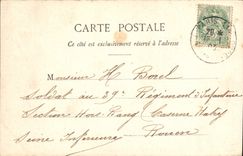 CARTE POSTALE
Ce côté est exclusivement réservé à l'adresse
Monsieur H Borel
Soldat au 39e Régiment d'Infanterie
Section Hors Rang Caserne Hatry
Seine Inférieure Rouen